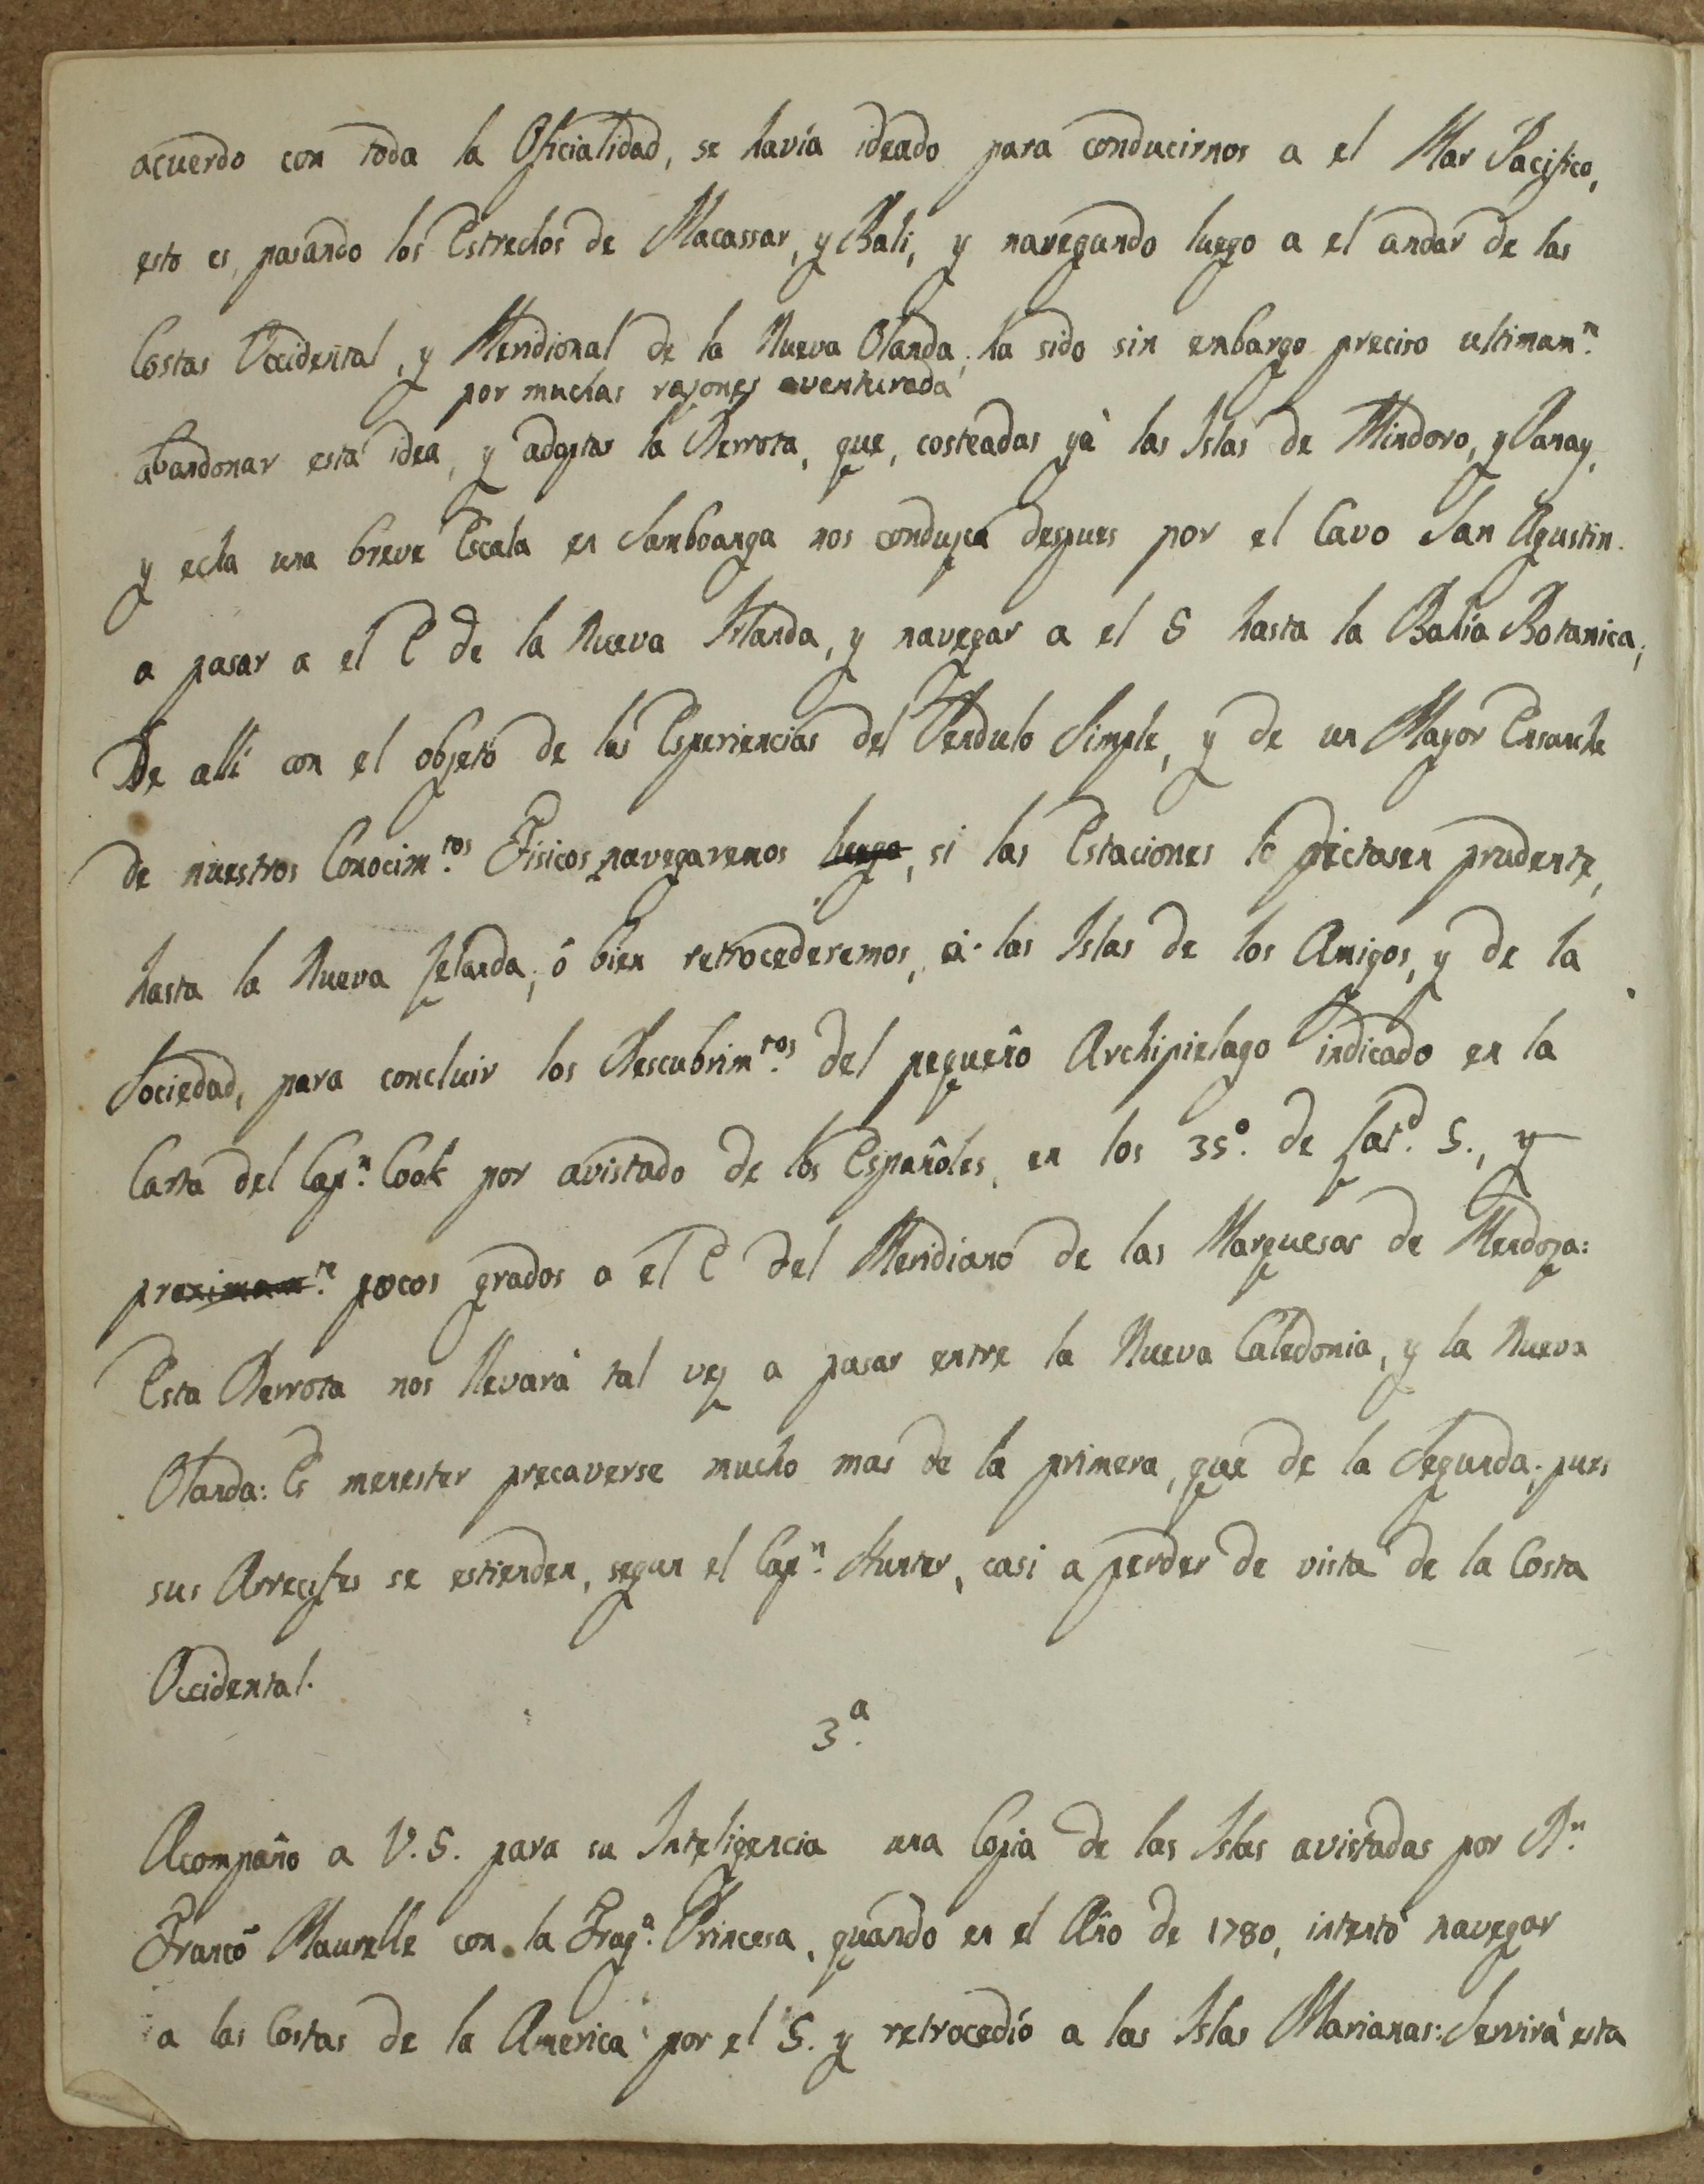 acuerdo con toda la Oficialidad, se havía ideado para conducirnos a el Mar Pacifico,
esto es, pasando los Estrechos de Macassar, y Bali, y navegando luego a el andar de las
Costas Occidental, y Meridional de la Nueva Olanda; ha sido sin embargo preciso ultimamte.
por muchas razones aventurada
abandonar esta idea, y adoptar la Derrota, que, costeadas yà las Islas de Mindoro, y Panay,
y echa una breve Escala en Samboanga nos conduzca despues por el Cavo San Agustin.
a pasar a el E de la Nueva Irlanda, y navegar a el S hasta la Bahía Botanica;
De allí con el objeto de las Esperiencias del Pendulo Simple, y de un Mayor Ensanche
de nuestros Conocim.tos Fisicos navegaremos luego, si las Estaciones lo dictasen prudente,
hasta la Nueva Zelanda; ó bien retrocederemos, à las Islas de los Amigos, y de la
Sociedad, para concluir los Descubrim.tos del pequeño Archipielago indicado en la
Carta del Cap.n Cook por avistado de los Españoles, en los 35°. de Lat.d S., y
proximam.te pocos grados a el E del Meridiano de las Marquesas de Mendoza:
Esta Derrota nos llevará tal vez a pasar entre la Nueva Caledonia, y la Nueva
Olanda: Es menester precaverse mucho mas de la primera, que de la Segunda; pues
sus Arrecifes se estienden, segun el Cap.n Hunter, casi a perder de vista de la Costa
Occidental.
3.a
Acompaño a V.S. para su Inteligencia una Copia de las Islas avistadas por D.n
Franco Maurelle con la Frag.a Princesa, quando en el Año de 1780, intentó navegar
a las Costas de la America por el S. y retrocedió a las Islas Marianas: Servirà esta